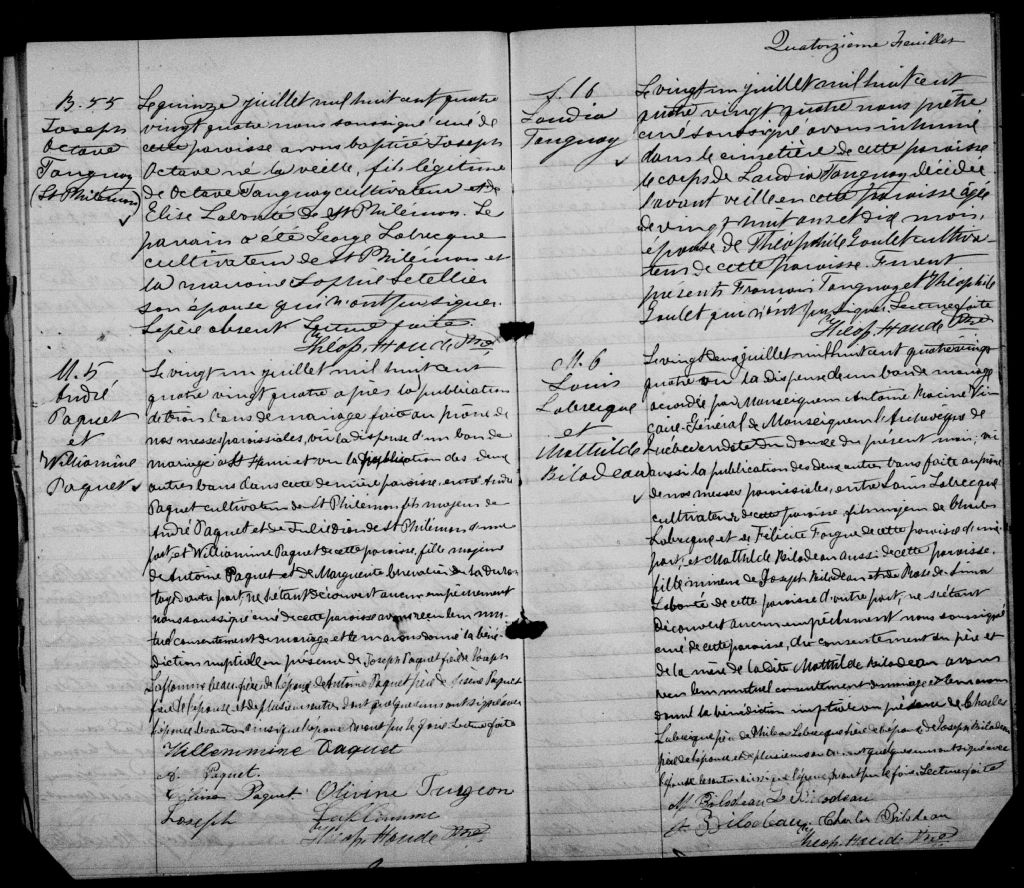 B. 55
Joseph
Octave
Tanguay
(St Philémon)
Le quinze juillet mil huit cent quatre
vingt quatre nous soussigné curé de
cette paroisse avons baptisé Joseph
Octave né la veille, fils légitime
de Octave Tanguay cultivateur et de
Elise Labonté de St Philémon. Le
parrain a été George Labrecque
cultivateur de St Philémon et
la marraine Sophie Letellier
son épouse qui n'ont pu signer.
Le père absent. Lecture faite.
Théop. Houde Ptre
M. 5
André
Paquet
et
Williamine
Paquet
Le vingt un juillet mil huit cent
quatre vingt quatre après la publication
de trois bans de mariage faite au prône de
nos messes paroissiales, vu la dispense d'un ban de
mariage à St Henri et vu la publication des deux
autres bans dans cette dernière paroisse, entre André
Paquet cultivateur de St Philémon fils majeur de
André Paquet et de de St Philémon d'une
part, et Williamine Paquet de cette paroisse, fille majeure
de Antoine Paquet et de Marguerite
d'autre part, ne s'étant découvert aucun empêchement
nous soussigné curé de cette paroisse avons reçu leur mu-
tuel consentement de mariage et leur avons donné la béné-
diction nuptiale en présence de Joseph Paquet frère Joseph
Laflamme beau-frère de l'époux, de Antoine Paquet père Paquet
frère de l'épouse, et de plusieurs autres dont quelques uns ont signé avec
l'épouse, les autres ainsi que l'époux n'ont pu le faire. Lecture faite
Willemmine Paquet
A. Paquet.
Paquet. Olivine Turgeon
Joseph
Théop. Houde Ptre
Quatorzième Feuillet
S. 16
Tanguay
Le vingt un juillet mil huit cent
quatre vingt quatre nous prêtre
curé soussigné avons inhumé
dans le cimetière de cette paroisse
le corps de Tanguay décédée
l'avant veille en cette paroisse âgée
de vingt huit ans et dix mois,
épouse de Théophile Goulet cultiva-
teur de cette paroisse. Furent
présents François Tanguay et Théophile
Goulet qui n'ont pu signer. Lecture faite
Théop. Houde Ptre
M. 6
Louis
Labrecque
et
Mathilde
Bilodeau
Le vingt deux juillet mil huit cent quatre vingt
quatre vu la dispense d'un ban de mariage
accordée par Monseigneur Antoine Racine Vi-
caire-Général de Monseigneur l'Archevêque de
Québec en date du douze du présent mois, vu
aussi la publication des deux autres bans faite au prône
de nos messes paroissiales, entre Louis Labrecque
cultivateur de cette paroisse fils majeur de Charles
Labrecque et de Félicité Forgue de cette paroisse d'une
part, et Mathilde Bilodeau aussi de cette paroisse,
fille mineure de Joseph Bilodeau et de Rose de Lima
Labonté de cette paroisse d'autre part, ne s'étant
découvert aucun empêchement nous soussigné
curé de cette paroisse, du consentement du père et
de la mère de la dite Mathilde Bilodeau avons
reçu leur mutuel consentement de mariage et leur avons
donné la bénédiction nuptiale en présence de Charles
Labrecque père de Labrecque frère de l'époux, de Joseph Bilodeau
père de l'épouse et de plusieurs autres dont quelques uns ont signé avec
l'épouse les autres ainsi que l'époux n'ont pu le faire. Lecture faite
M. Bilodeau Bilodeau
Bilodeau Charles Bilodeau
Théop. Houde Ptre